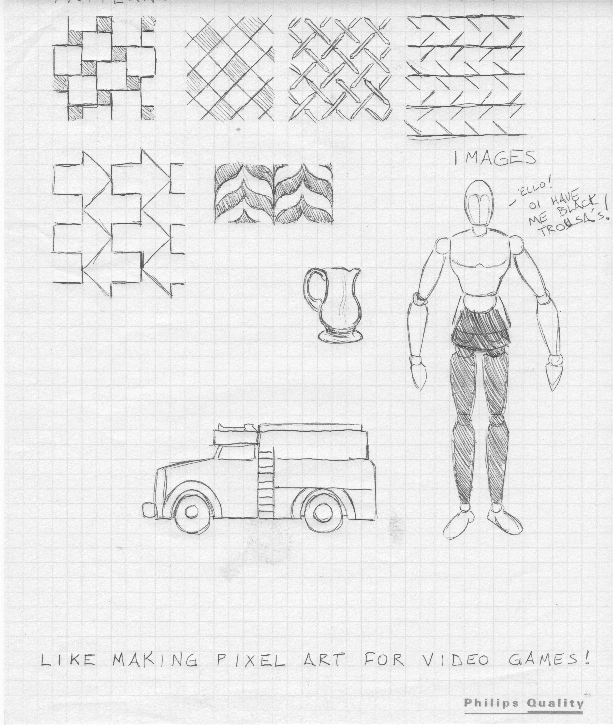 IMAGES
'ELLO!
OI HAVE
ME BLACK
TROUSA'S!
LIKE MAKING PIXEL ART FOR VIDEO GAMES!
Philips Quality